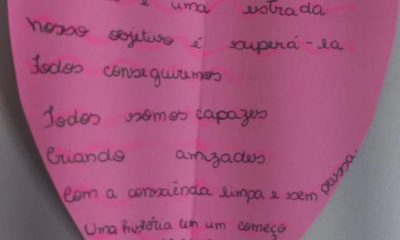 é uma estrada
nosso objetivo é superá-la
Todos conseguiremos
Todos somos capazes
Criando amizades
Com a consciência limpa e sem pressa
Uma história um começo